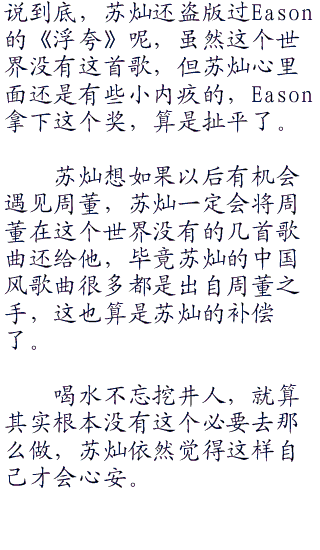 说到底，苏灿还盗版过Eason
的《浮夸》呢，虽然这个世
界没有这首歌，但苏灿心里
面还是有些小内疚的，Eason
拿下这个奖，算是扯平了。
苏灿想如果以后有机会
遇见周董，苏灿一定会将周
董在这个世界没有的几首歌
曲还给他，毕竟苏灿的中国
风歌曲很多都是出自周董之
手，这也算是苏灿的补偿
了。
喝水不忘挖井人，就算
其实根本没有这个必要去那
么做，苏灿依然觉得这样自
己才会心安。